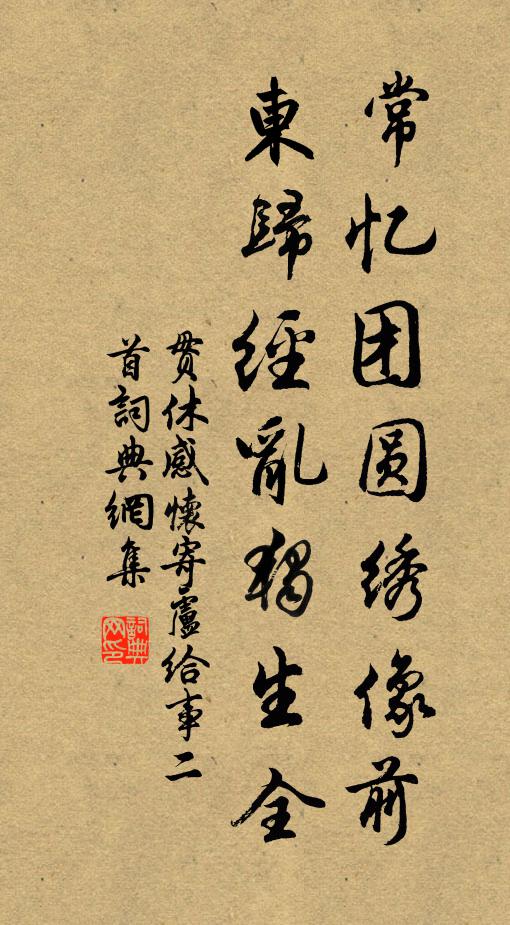 常忆团圆绣像前
東歸經亂独生全
贯休感懷寄盧給事二
首詞典網集
詞典
网印